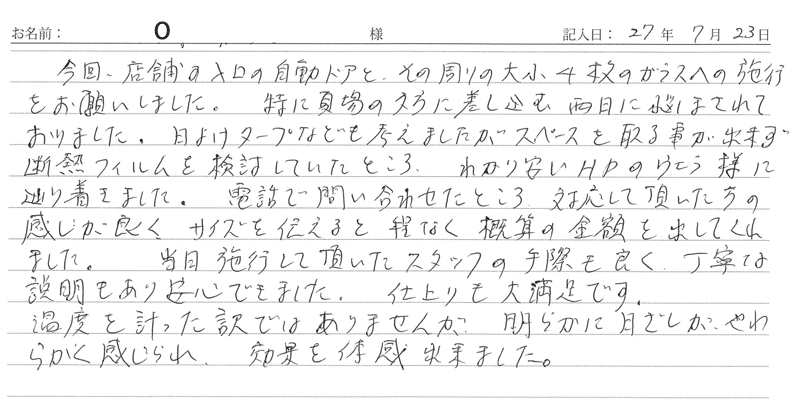 お名前: O 様 記入日: 27年 7月 23日
今回、店舗の入口の自動ドアと、その周りの大小4枚のガラスへの施行
をお願いしました。 特に夏場の夕方に差し込む西日に悩まされて
おりました。日よけタープなども考えましたがスペースを取る事が出来ず
断熱フィルムを検討していたところ、わかり安いHPの 様に
辿り着きました。 電話で問い合わせたところ、対応して頂いた方の
感じが良く、サイズを伝えると程なく概算の金額を出してくれ
ました。 当日施行して頂いたスタッフの手際も良く、丁寧な
説明もあり安心できました。 仕上りも大満足です。
温度を計った訳ではありませんが、明らかに日ざしが、やわ
らかく感じられ、 効果を体感出来ました。